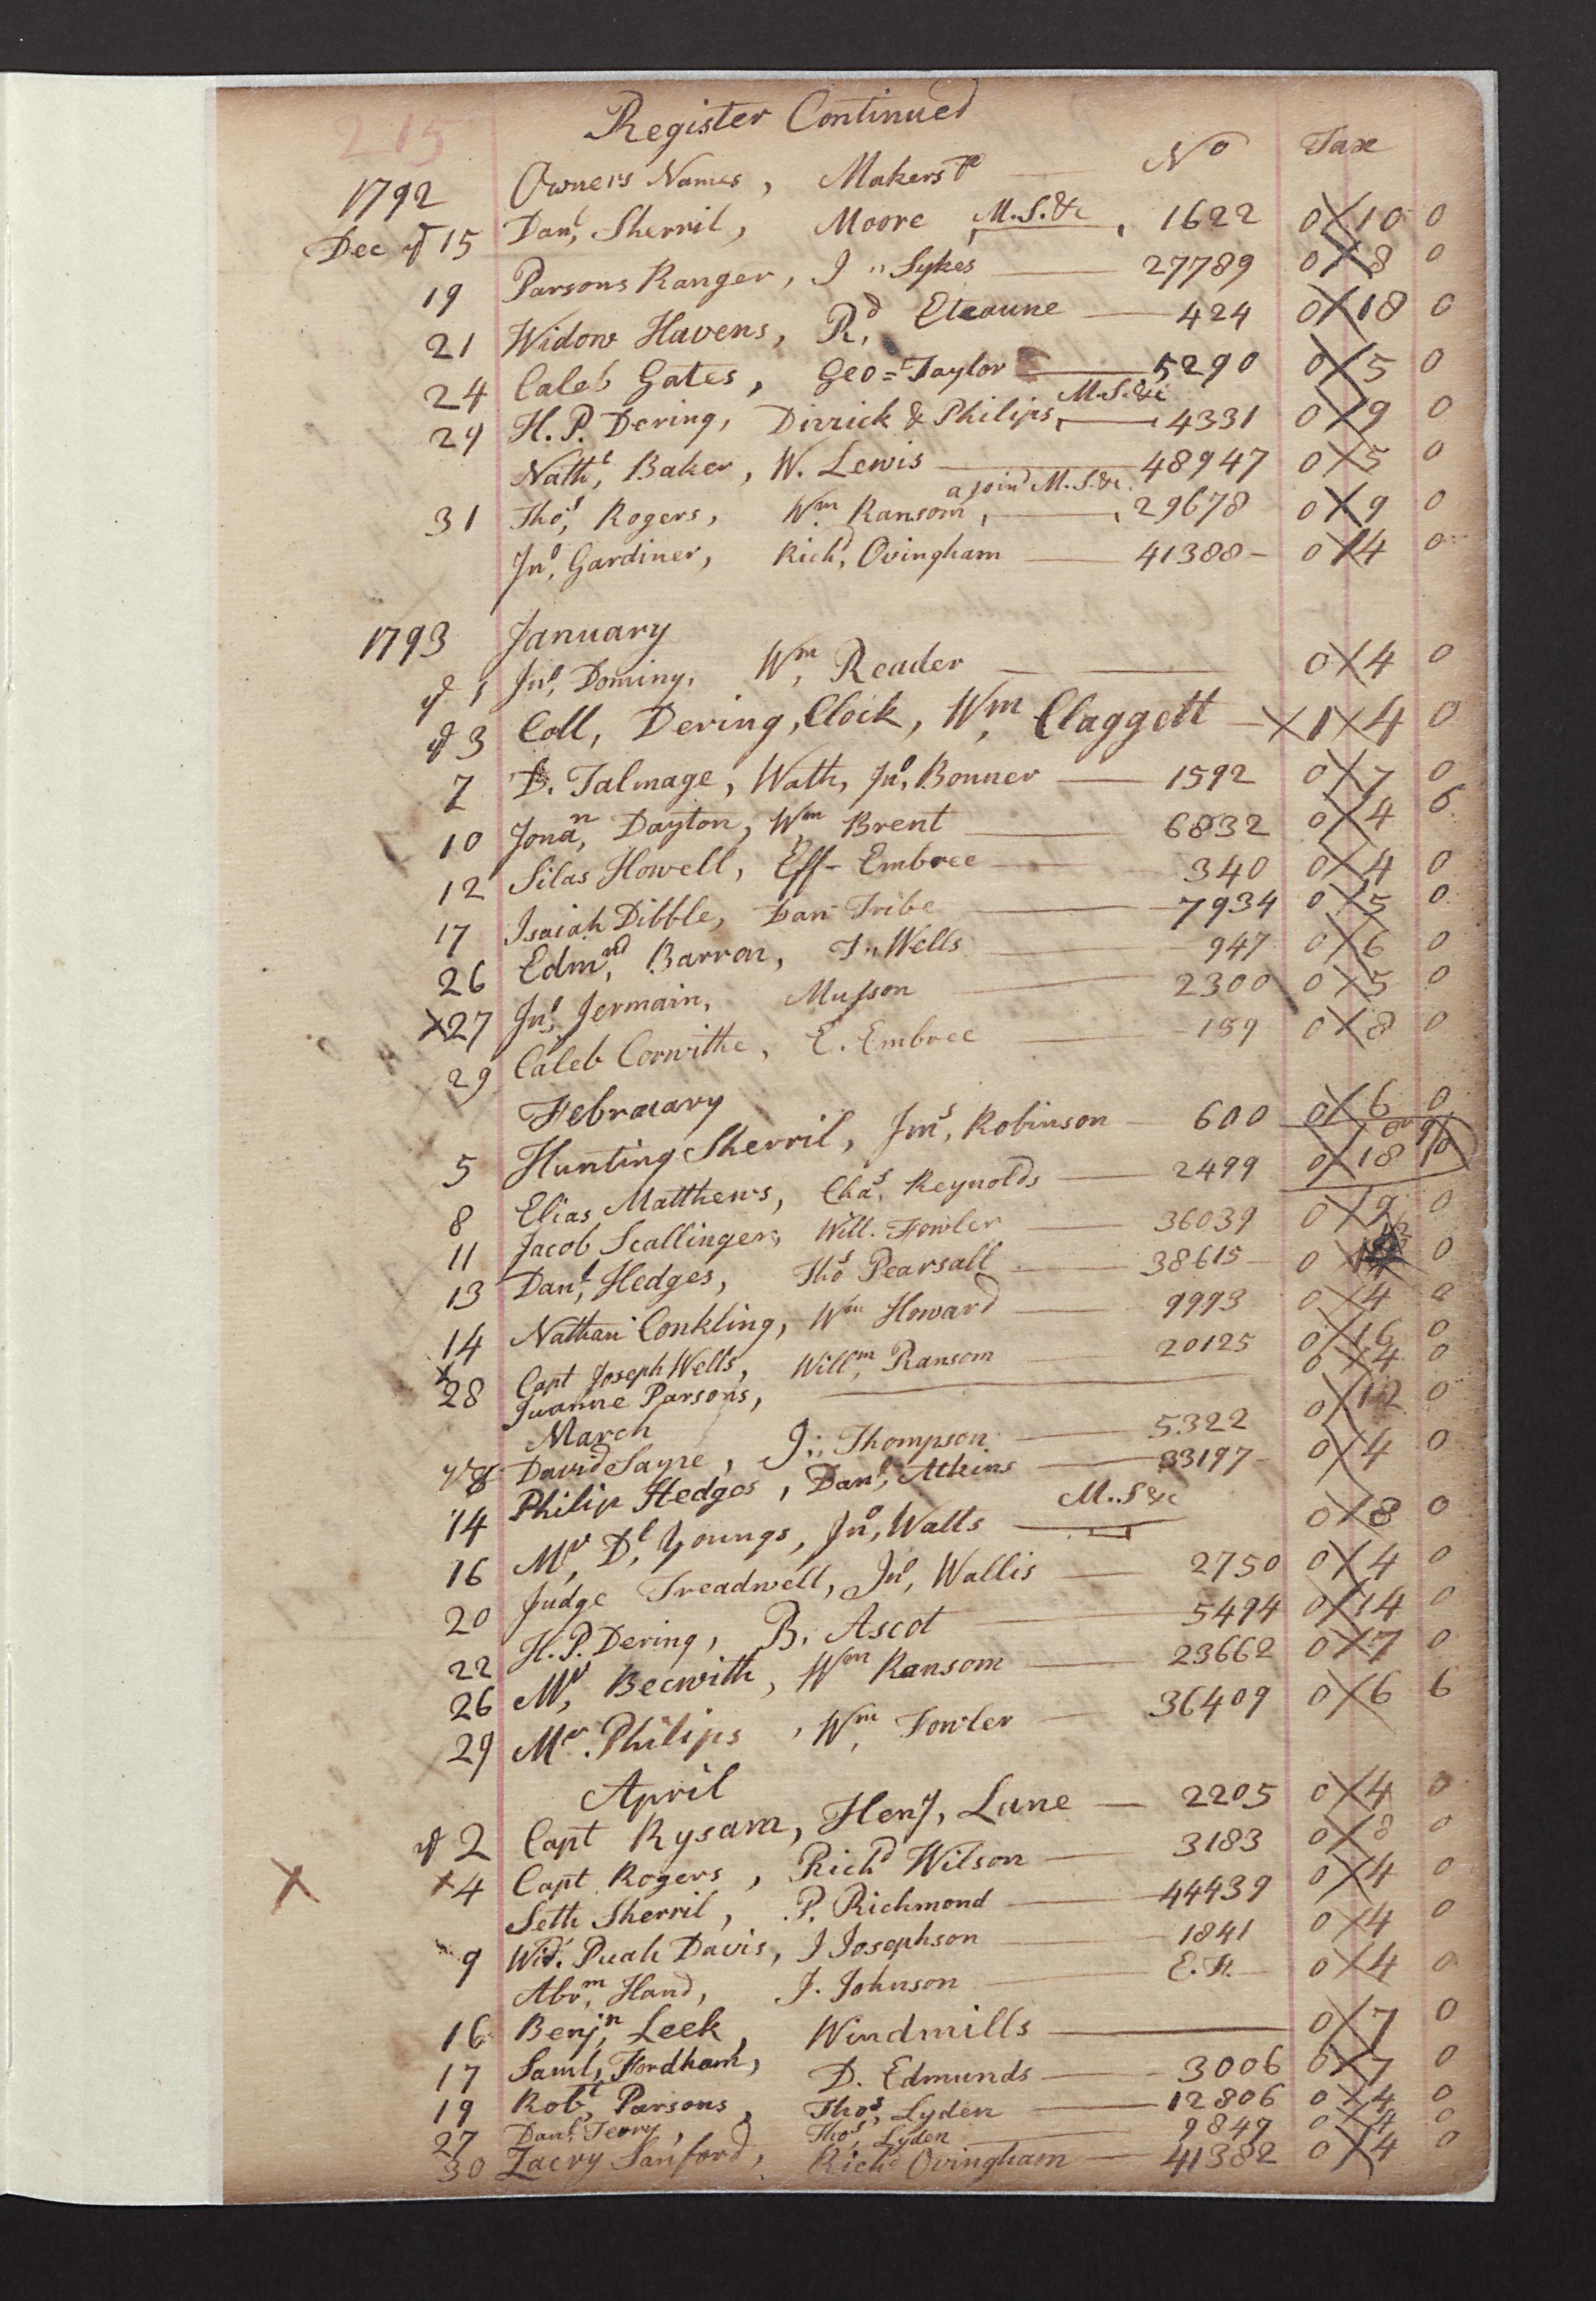 215
Register Continued
1792 Owners Names, Makers Do No Tax
Dec ye 15 Danl, Sherril, Moore M.S.&c, 1622 0 10 0
19 Parsons Ranger, J " Sykes 27789 0 8 0
21 Widow Havens, Rd, 424 0 18 0
24 Caleb Gates, Geo= Taylor 5290 0 5 0
29 H. P. Dering, Dirrick & Philips, M.S.&c 4331 0 9 0
Nathl, Baker, W. Lewis 48947 0 5 0
31 Thos, Rogers, Wm Ransom, a join M.S.&c. 29678 0 9 0
Jno, Gardiner, Richd, Ovingham 41388 - 0 4 0
1793 January
ye 1 Jno, Dominy, Wm, Reader 0 4 0
ye 3 Coll, Dering, Clock, Wm, Claggett 1 4 0
7 D. Talmage, Wath, Jno, Bonner 1592 0 7 0
10 Jonan, Dayton, Wm Brent 6832 0 4 6
12 Silas Howell, Eff- Embree 340 0 4 0
17 Isaiah Dibble, Dan Tribe 7934 0 5 0
26 Edmnd, Barron, J,, Wells 947 0 6 0
X27 Jno, Jermain, Musson 2300 0 5 0
29 Caleb Corwithe, E. Embree 139 0 8 0
February
5 Hunting Sherril, Jms, Robinson 600 0 6 0
8 Elias Matthews, Chas, Reynolds 2499 0 18 0
11 Jacob Scallinger, Will. Fowler 36039 0 9 0
13 Danl, Hedges, Thos Pearsall 38615 - 0 0
14 Nathan Conkling, Wm Howard 9993 0 4 0
X 28 Capt Joseph Wells, Willm, Ransom 20125 0 16 0
Juanne Parsons, 0 4 0
March
ye 8 David Sayre, J,, Thompson 5322 0 12 0
14 Philip Hedges, Danl, Atkins 33197 - 0 4 0
16 Mr, Dl, Youngs, Jno, Watts M..S &c 0 8 0
20 Judge Treadwell, Jno, Wallis 2750 0 4 0
22 H.P. Dering, B. Ascot 5494 0 14 0
26 Mr, Becwith, Wm Ransom 23662 0 7 0
29 Mr. Philips, Wm, Fowler 36409 0 6 6
April
ye 2 Capt Rysam, Heny, Lane 2205 0 4 0
X X4 Capt Rogers, Richd Wilson 3183 0 8 0
Seth Sherril, P. Richmond 44439 0 4 0
9 Wid. Puah Davis, J Josephson 1841 0 4 0
Abrm, Hand, J. Johnson E.H. 0 4 0
16 Benjn, Leek, Windmills 0 7 0
17 Saml, Fordham, D. Edmunds 3006 0 7 0
19 Robt, Parsons, Thos, Lyden 12806 0 4 0
27 Danl, Terry, Thos, Lyden 9847 0 4 0
30 Zacry Sanford, Richd Ovingham 41382 0 4 0